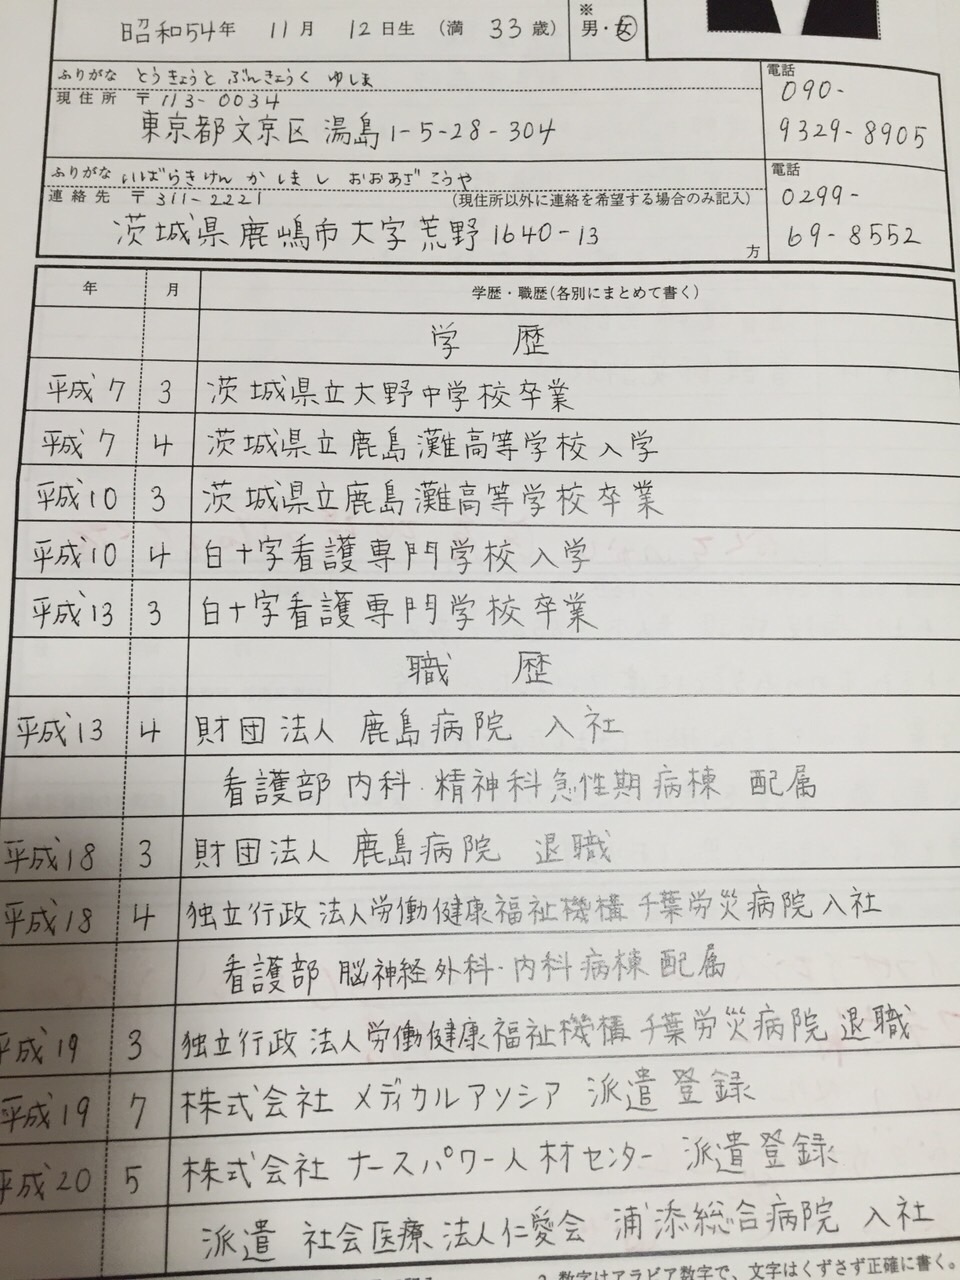 ※
昭和54年 11月 12日生 (満 33歳) 男・女
ふりがな とうきょうと ぶんきょうく ゆしま
現住所 〒113-0034
東京都文京区湯島1-5-28-304
電話
090-
9329-8905
ふりがな いばらきけん かしまし おおあざ こうや
連絡先 〒311-2221 (現住所以外に連絡を希望する場合のみ記入)
茨城県鹿嶋市大字荒野1640-13
方
電話
0299-
69-8552
年 月 学歴・職歴(各別にまとめて書く)
学 歴
平成7 3 茨城県立大野中学校卒業
平成7 4 茨城県立鹿島灘高等学校入学
平成10 3 茨城県立鹿島灘高等学校卒業
平成10 4 白十字看護専門学校入学
平成13 3 白十字看護専門学校卒業
職 歴
平成13 4 財団法人 鹿島病院 入社
看護部 内科・精神科急性期病棟 配属
平成18 3 財団法人 鹿島病院 退職
平成18 4 独立行政法人労働健康福祉機構 千葉労災病院 入社
看護部 脳神経外科・内科病棟 配属
平成19 3 独立行政法人労働健康福祉機構 千葉労災病院 退職
平成19 7 株式会社 メディカルアソシア 派遣登録
平成20 5 株式会社 ナースパワー人材センター 派遣登録
派遣 社会医療法人仁愛会 浦添総合病院 入社
2 数字はアラビア数字で、文字はくずさず正確に書く。